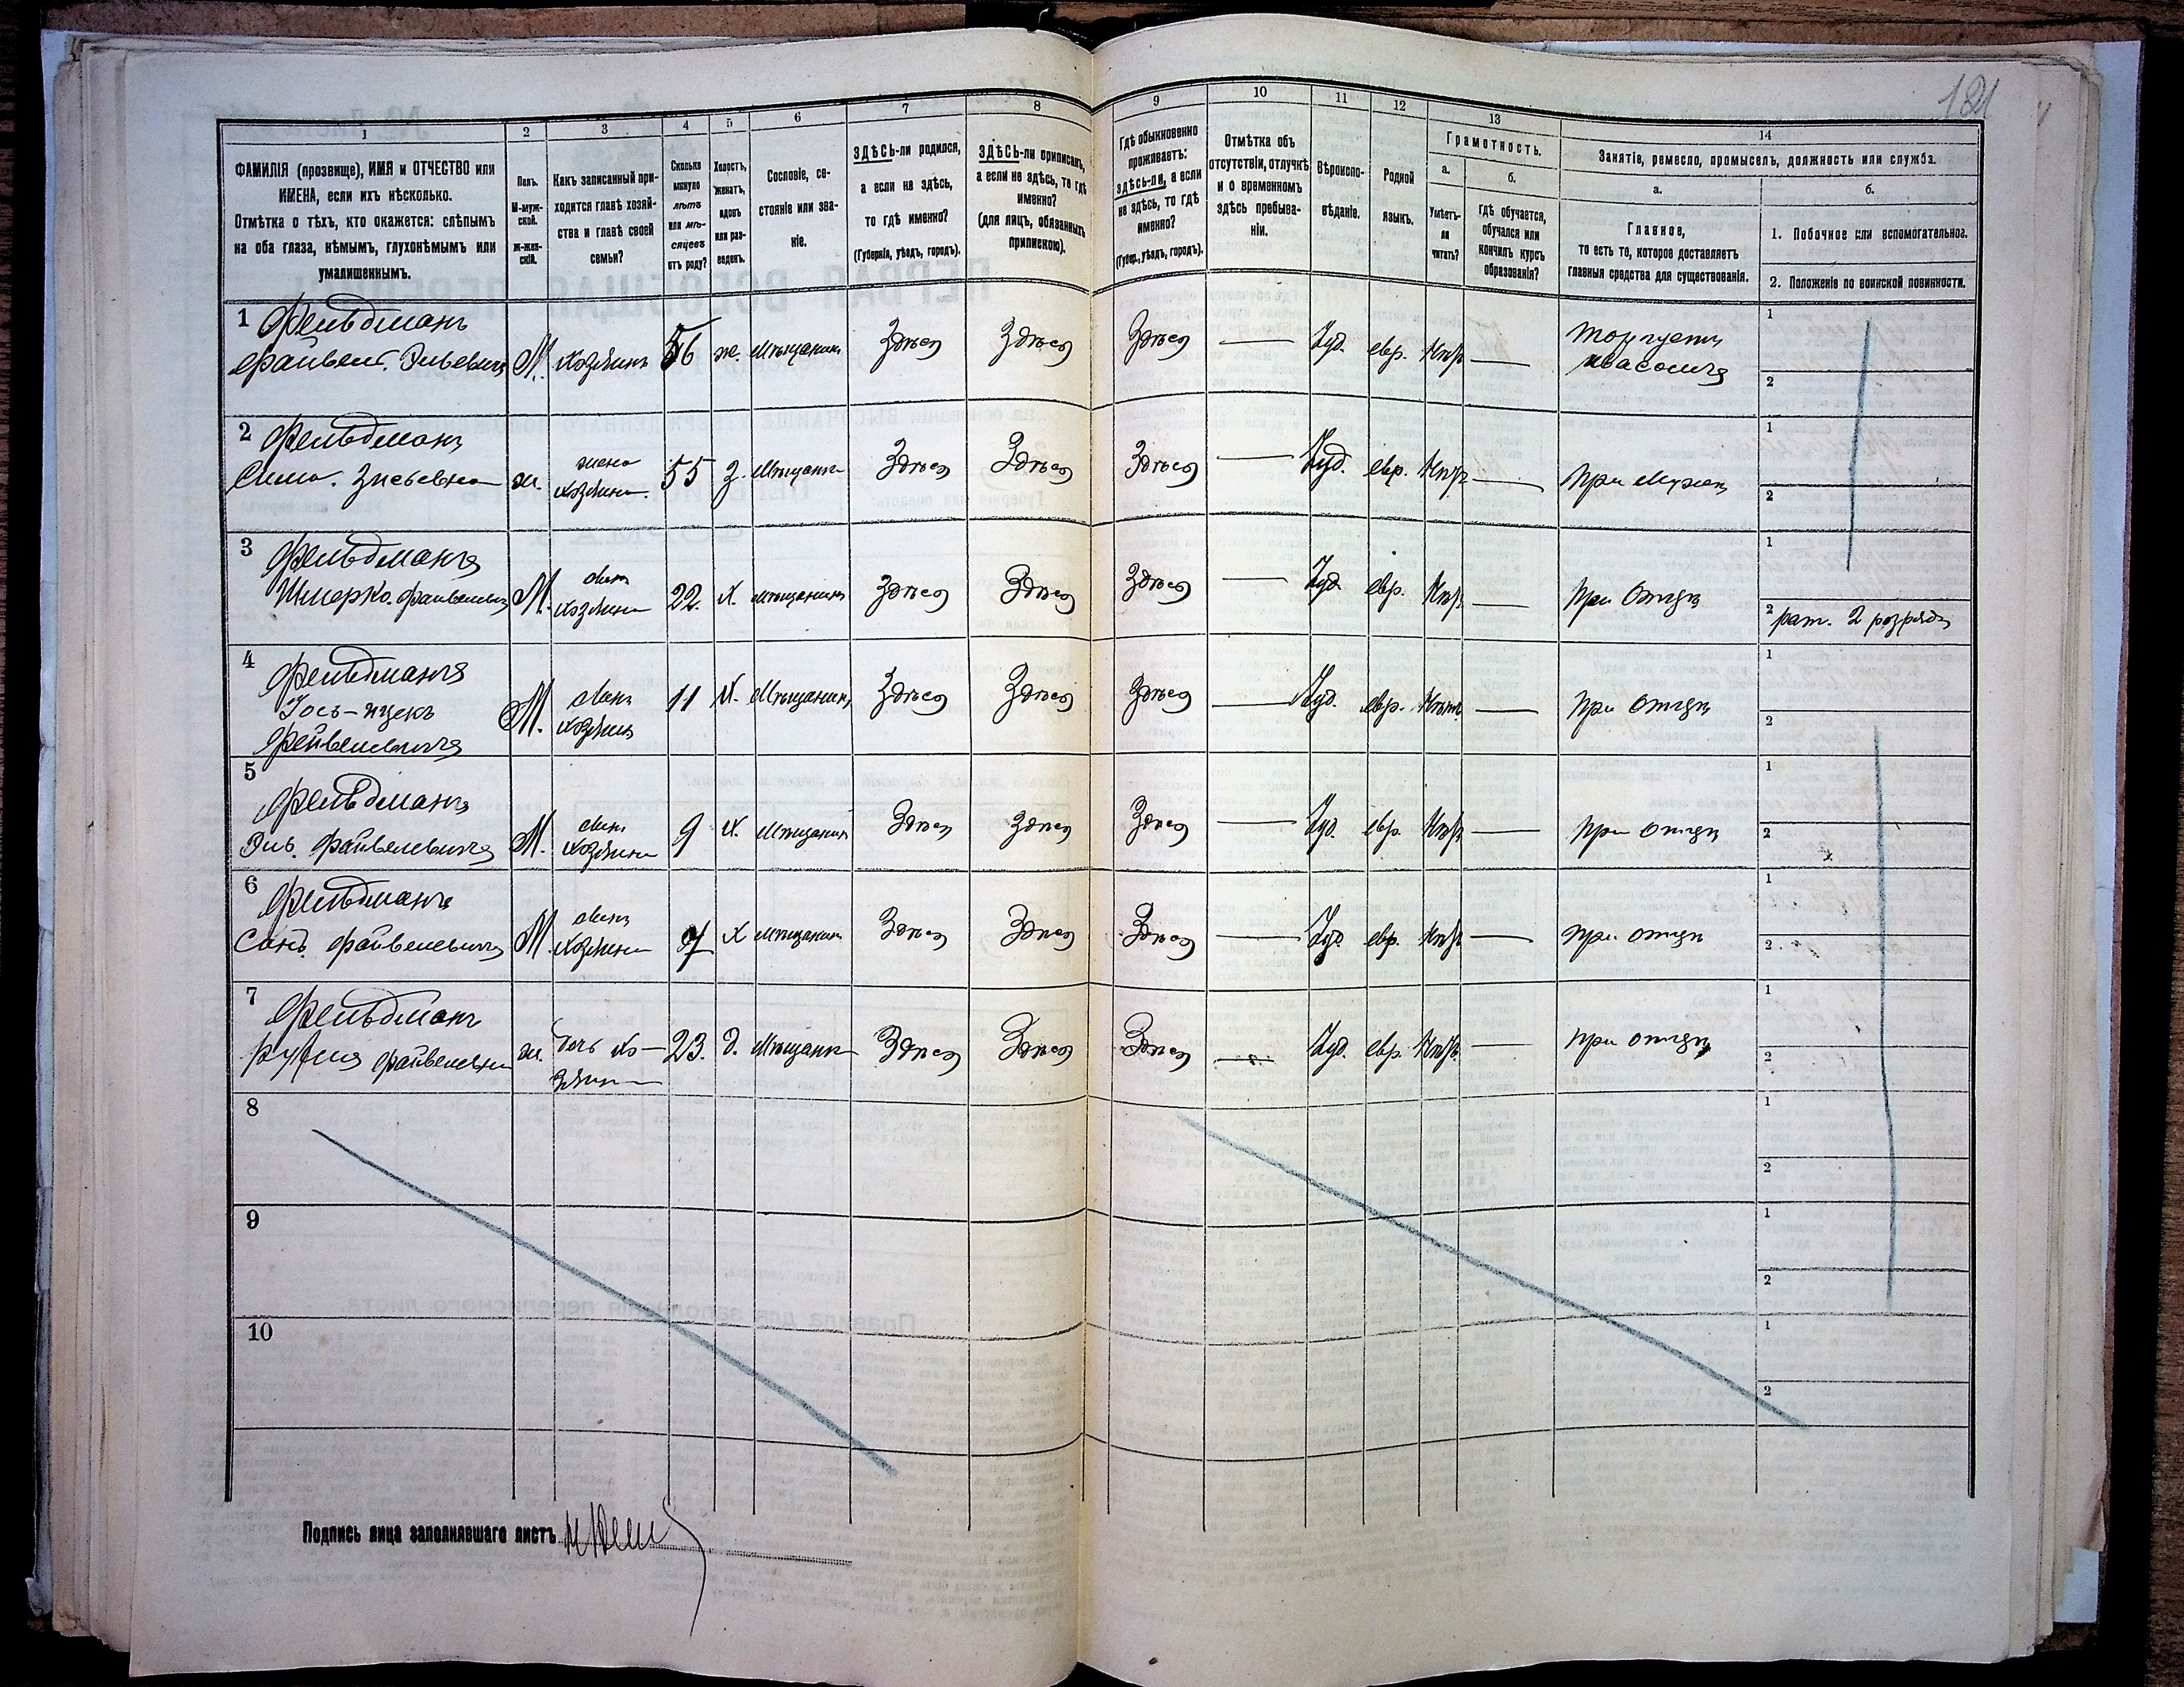 181
1
2
3
4
5
6
7
8
9
10
11
12
13
14
ФАМИЛІЯ (прозвище), ИМЯ и ОТЧЕСТВО или
ИМЕНА, если ихъ нѣсколько.
Отмѣтка о тѣхъ, кто окажется: слѣпымъ
на оба глаза, нѣмымъ, глухонѣмымъ или
умалишеннымъ.
Полъ.
М-муж-
ской.
Ж-жен-
скій.
Какъ записанный при-
ходится главѣ хозяй-
ства и главѣ своей
семьи?
Сколько
минуло
лѣтъ
или мѣ-
сяцевъ
отъ роду?
Холостъ,
женатъ,
вдовъ
или раз-
веденъ.
Сословіе, со-
стояніе или зва-
ніе.
ЗДѢСЬ-ли родился,
а если не здѣсь,
то гдѣ именно?
(Губернія, уѣздъ, городъ).
ЗДѢСЬ-ли приписанъ,
а если не здѣсь, то гдѣ
именно?
(для лицъ, обязанныхъ
припискою).
Гдѣ обыкновенно
проживаетъ:
здѣсь-ли, а если
не здѣсь, то гдѣ
именно?
(Губер., уѣздъ, городъ).
Отмѣтка объ
отсутствіи, отлучкѣ
и о временномъ
здѣсь пребыва-
ніи.
Вѣроиспо-
вѣданіе.
Родной
языкъ.
Грамотность.
а.
б.
Умѣетъ-
ли
читать?
гдѣ обучается,
обучался или
кончилъ курсъ
образованія?
Занятіе, ремесло, промыселъ, должность или служба.
а.
б.
Главное,
то есть то, которое доставляетъ
главныя средства для существованія.
1. Побочное или вспомогательное.
2. Положеніе по воинской повинности.
1 Фельдманъ
Файвель Эльевичъ М. хозяинъ 56 ж. мѣщанинъ Здѣсь Здѣсь Здѣсь — Іуд. евр. Нѣтъ —
Торгуетъ
квасомъ
1
2
2 Фельдманъ
Сима ж.
жена
хозяина 55 з. мѣщанка Здѣсь Здѣсь Здѣсь — Іуд. евр. Нѣтъ — при мужѣ
1
2
3 Фельдманъ
Шмерко Файвелевичъ М.
сынъ
хозяина 22. х. мѣщанинъ Здѣсь Здѣсь Здѣсь — Іуд. евр. Нѣтъ — при отцѣ
1
2 рат. 2 розряда
4 Фельдманъ
Іось-Ицекъ
Файвелевичъ М.
сынъ
хозяина 11 х. мѣщанинъ Здѣсь Здѣсь Здѣсь — Іуд. евр. Нѣтъ — при отцѣ
1
2
5
Фельдманъ
Эль Файвелевичъ М.
сынъ
хозяина 9 х. мѣщанинъ Здѣсь Здѣсь Здѣсь — Іуд. евр. Нѣтъ — при отцѣ
1
2
6
Фельдманъ
Файвелевичъ М.
сынъ
хозяина 7 х мѣщанинъ Здѣсь Здѣсь Здѣсь — Іуд. евр. Нѣтъ — при отцѣ
1
2
7
Фельдманъ
Файвелевна ж.
дочь хо-
зяина 23. д. мѣщанка Здѣсь Здѣсь Здѣсь — Іуд. евр. Нѣтъ — при отцѣ
1
2
8
1
2
9
1
2
10
1
2
Подпись лица заполнявшаго листъ